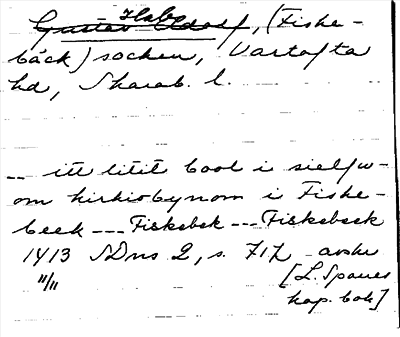 Habo
Gustav Adolf, (Fiske-
bäck) socken, Vartofta
hd, Skarab. l.
-- itt litit bool i sielfw-
om kirkiobynom i Fiske-
beek --- Fiskebek --- Fiskebeek
1413 SDns 2, s. 717 avskr
11/11 [L. Spaues
kop. bok]